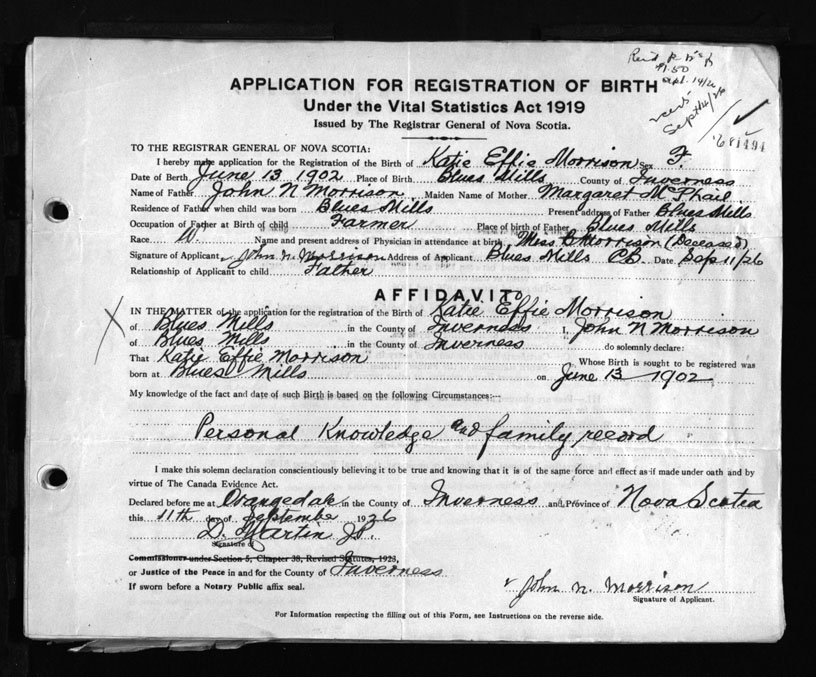 Rec'd
$1.50
Sept. 14/26
Sept 14/26
681494
APPLICATION FOR REGISTRATION OF BIRTH
Under the Vital Statistics Act 1919
Issued by The Registrar General of Nova Scotia.
TO THE REGISTRAR GENERAL OF NOVA SCOTIA:
I hereby make application for the Registration of the Birth of Katie Effie Morrison Sex F
Date of Birth June 13 1902 Place of Birth Blues Mills County of Inverness
Name of Father John N Morrison Maiden Name of Mother Margaret McPhail
Residence of Father when child was born Blues Mills Present address of Father Blues Mills
Occupation of Father at Birth of child Farmer Place of birth of Father Blues Mills
Race W. Name and present address of Physician in attendance at birth Miss B Morrison (Deceased)
Signature of Applicant John N. Morrison Address of Applicant Blues Mills CB Date Sep 11/26
Relationship of Applicant to child Father
AFFIDAVIT
IN THE MATTER of the application for the registration of the Birth of Katie Effie Morrison
of Blues Mills in the County of Inverness I, John N Morrison
of Blues Mills in the County of Inverness do solemnly declare:
That Katie Effie Morrison Whose Birth is sought to be registered was
born at Blues Mills on June 13 1902
My knowledge of the fact and date of such Birth is based on the following Circumstances:—
Personal Knowledge and family record
I make this solemn declaration conscientiously believing it to be true and knowing that it is of the same force and effect as if made under oath and by
virtue of The Canada Evidence Act.
Declared before me at Orangedale in the County of Inverness and Province of Nova Scotia
this 11th day of September 1926
D. Martin J.P.
Signature of
Commissioner under Section 5, Chapter 38, Revised Statutes, 1923,
or Justice of the Peace in and for the County of Inverness
If sworn before a Notary Public affix seal.
John N. Morrison
Signature of Applicant.
For Information respecting the filling out of this Form, see Instructions on the reverse side.